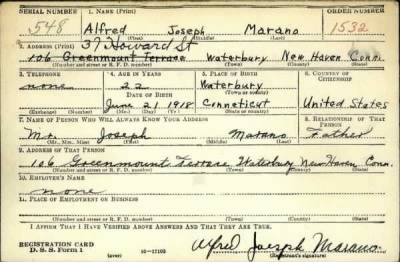 SERIAL NUMBER 1. NAME (Print) ORDER NUMBER
548 Alfred Joseph Marano 1532
(First) (Middle) (Last)
2. ADDRESS (Print) 37 Howard St
106 Greenmount Terrace Waterbury New Haven Conn.
(Number and street or R. F. D. number) (Town) (County) (State)
3. TELEPHONE 4. AGE IN YEARS 5. PLACE OF BIRTH 6. COUNTRY OF CITIZENSHIP
none 22 Waterbury
(Town or county)
DATE OF BIRTH
June 21 1918 Connecticut United States
(Exchange) (Number) (Mo.) (Day) (Yr.) (State or country)
7. NAME OF PERSON WHO WILL ALWAYS KNOW YOUR ADDRESS 8. RELATIONSHIP OF THAT PERSON
Mr. Joseph Marano Father
(Mr., Mrs., Miss) (First) (Middle) (Last)
9. ADDRESS OF THAT PERSON
106 Greenmount Terrace Waterbury New Haven Conn.
(Number and street or R. F. D. number) (Town) (County) (State)
10. EMPLOYER'S NAME
none
11. PLACE OF EMPLOYMENT OR BUSINESS
(Number and street or R. F. D. number) (Town) (County) (State)
I AFFIRM THAT I HAVE VERIFIED ABOVE ANSWERS AND THAT THEY ARE TRUE.
REGISTRATION CARD
D. S. S. Form 1 (over) 16—17105 Alfred Joesph Marano
(Registrant's signature)